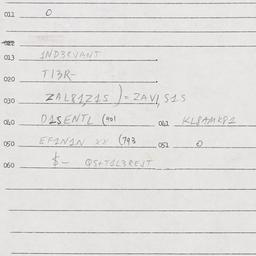 011 0
013 1ND3RVANT
020 T13R-
030 ZAL81Z1S ) = ZAV1, S1S
040 D1SENTL (401 041 KL8AMK81
050 EF1N1N xx (793 051 0
060 $- QS+T1L3REJT